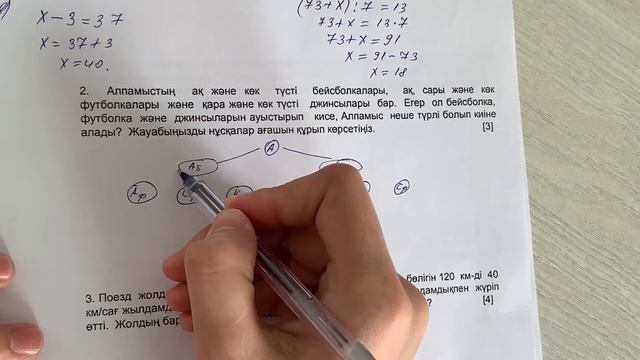 x - 3 = 37
x = 37 + 3
x = 40.
(73+x) : 7 = 13
73+x = 13·7
73+x = 91
x = 91 - 73
x = 18
2. Алпамыстың ақ және көк түсті бейсболкалары, ақ, сары және көк
футболкалары және қара және көк түсті джинсылары бар. Егер ол бейсболка,
футболка және джинсыларын ауыстырып кисе, Алпамыс неше түрлі болып киіне
алады? Жауабыңызды нұсқалар ағашын құрып көрсетіңіз. [3]
А
Аб
Аф
Сф
3. Поезд жолд бөлігін 120 км-ді 40
км/сағ жылдамд дамдықпен жүріп
өтті. Жолдың бар ? [4]